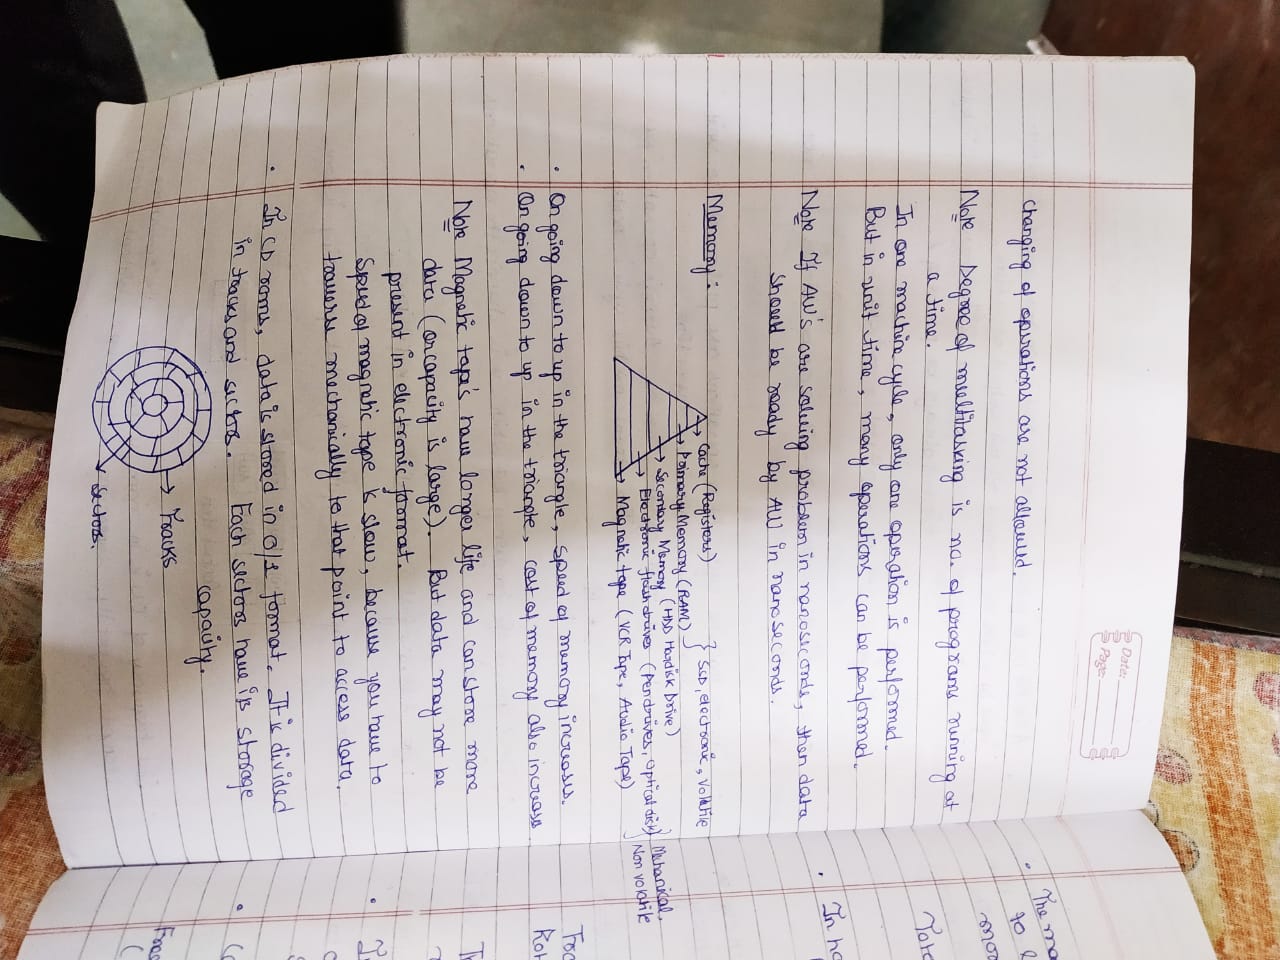 Date:
Page:
changing of operations are not allowed.
Note Degree of multitasking is no. of programs running at
a time.
In one machine cycle, only one operation is performed.
But in unit time, many operations can be performed.
Note If AU's are solving problem in nanoseconds, then data
should be ready by AU in nanoseconds.
Memory:
Cache (Registers)
Primary Memory (RAM) } SSD, electronic, Volatile
Secondary Memory (HDD Hardisk Drive)
Electronic flash drives (Pendrives, optical disk) } Mechanical,
Magnetic tape (VCR Tape, Audio Tape) Non volatile
• On going down to up in the triangle, speed of memory increases.
• On going down to up in the triangle, cost of memory also increases.
Note Magnetic tape's have longer life and can store more
data (or capacity is large). But data may not be
present in electronic format.
Speed of magnetic tape is slow, because you have to
traverse mechanically to that point to access data.
• In CD roms, data is stored in 0/1 format. It is divided
in tracks and sectors. Each sectors have is storage
capacity.
→ Tracks
sectors.
• The ma
to l
mor
Tota
• In ha
Trac
Rot
I
• I
• C